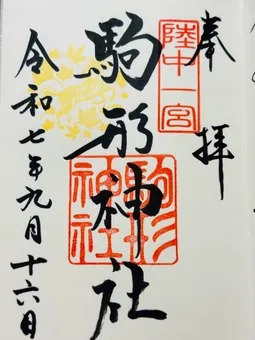 奉拝
陸中一宮
駒形神社
駒形神社
令和七年九月十六日